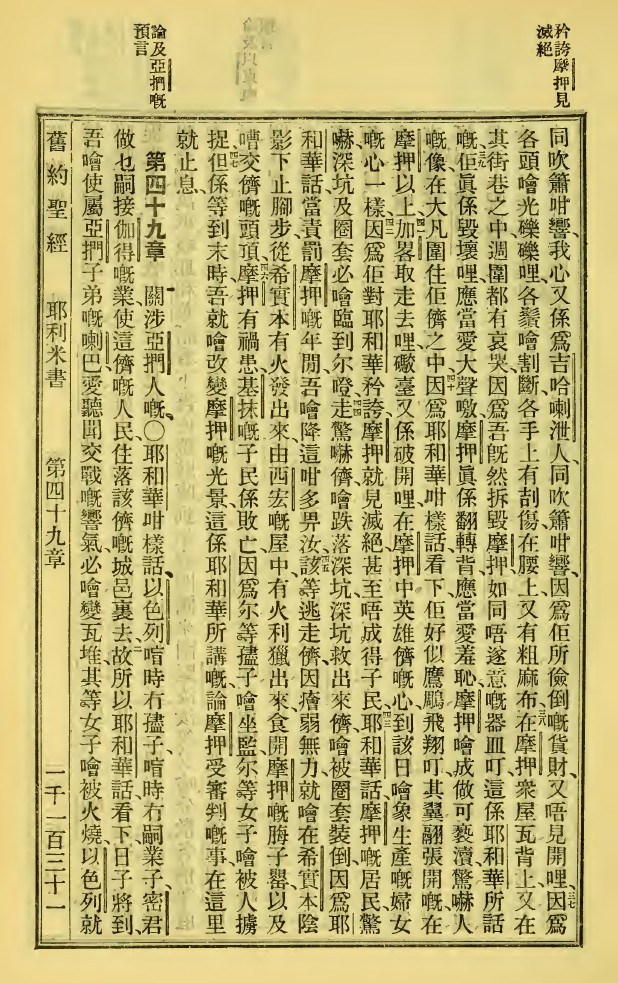 矜誇摩押見
滅絕
論及亞捫嘅
預言
同吹簫咁響、我心又係爲吉哈喇泄人、同吹簫咁響、因爲佢所儉倒嘅貨財、又唔見開哩、三七因爲
各頭噲光礫礫哩、各鬚噲割斷、各手上有刮傷、在腰上又有粗麻布、三八在摩押衆屋瓦背上、又在
其街巷之中、週圍都有哀哭、因爲吾旣然拆毀摩押、如同唔遂意嘅器皿叮、這係耶和華所話
嘅、三九佢眞係毀壞哩、應當愛大聲噭、摩押眞係翻轉背、應當愛羞恥、摩押噲成做可褻瀆驚嚇人
嘅像、在大凡圍住佢儕之中、四十因爲耶和華咁樣話、看下佢好似鷹鵰飛翔叮、其翼翮張開嘅、在
摩押以上、四一加畧取走去哩、礮臺又係破開哩、在摩押中英雄儕嘅心、到該日噲象生產嘅婦女
嘅心一樣、四二因爲佢對耶和華矜誇、摩押就見滅絕、甚至唔成得子民、四三耶和華話、摩押嘅居民、驚
嚇、深坑、及圈套、必噲臨到尔、四四噔走驚嚇儕、噲跌落深坑、深坑救出來儕、噲被圈套裝倒、因爲耶
和華話、當責罰摩押嘅年間、吾噲降這咁多畀汝、四五該等逃走儕、因瘡弱無力、就噲在希實本陰
影下止腳步、從希實本有火發出來、由西宏嘅屋中、有火利獵出來、食開摩押嘅膴子罌、以及
嘈交儕嘅頭頂、四六摩押有禍患、基抹嘅子民係敗亡、因爲尔等孻子噲坐監、尔等女子噲被人擄
捉、四七但係等到末時、吾就噲改變摩押嘅光景、這係耶和華所講嘅、論摩押受審判嘅事、在這里
就止息、
第四十九章　一關涉亞捫人嘅、〇耶和華咁樣話、以色列喧時冇孻子、喧時冇嗣業子、密君
做乜嗣接伽得嘅業、使這儕嘅人民、住落該儕嘅城邑裏去、二故所以耶和華話、看下日子將到、
吾噲使屬亞捫子弟嘅喇巴、愛聽聞交戰嘅響氣、必噲變瓦堆、其等女子噲被火燒、以色列就
舊約聖經　耶利米書　第四十九章　一千一百三十一